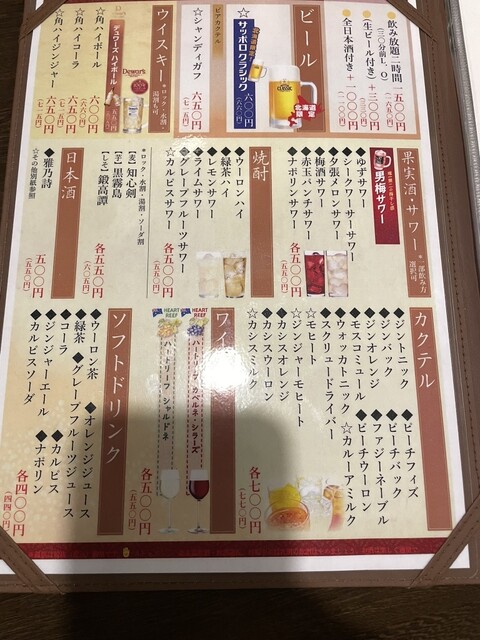 飲み放題二時間 一五〇〇円
(三〇分前L.O)
(生ビール付き)＋三〇〇円
●全日本酒付き＋一〇〇〇円
ビール
北海道限定
サッポロクラシック
CLASSIC
北海道限定
ビアカクテル
☆シャンディガフ
六五〇円
(七一五円)
ウイスキー
＊ロック・水割・湯割も可
デュワーズハイボール
Dewar's
☆角ハイボール 六〇〇円
☆角ハイコーラ 六五〇円
(七一五円)
☆角ハイジンジャー 六五〇円
(七一五円)
果実酒・サワー
＊一部飲み方選択可
男梅サワー
◆ゆずサワー
◆シークワーサーサワー
◆夕張メロンサワー
◆梅酒サワー
◆赤玉パンチサワー
◆ナポリンサワー
各五五〇円
焼酎
◆ウーロンハイ
◆緑茶ハイ
◆レモンサワー
◆ライムサワー
◆グレープフルーツサワー
☆カルピスサワー
各五五〇円
＊ロック・水割・湯割・ソーダ割
【麦】知心剣
【芋】黒霧島
【しそ】鍛高譚
各五五〇円
(六〇五円)
日本酒
◆雅乃詩
五〇〇円
☆その他別紙参照
カクテル
◆ジントニック
◆ジンバック
◆ジンオレンジ
◆モスコミュール
◆ウォッカトニック
◆スクリュードライバー
☆モヒート
☆ジンジャーモヒート
☆カシスオレンジ
☆カシスウーロン
☆カシスミルク
◆ピーチフィズ
◆ピーチバック
◆ファジーネーブル
◆ピーチウーロン
☆カルーアミルク
各七〇〇円
(七七〇円)
HEART REEF
ハートリーフ カベルネ・シラーズ
HEART REEF
ハートリーフ シャルドネ
各五〇〇円
(五五〇円)
ソフトドリンク
◆ウーロン茶
◆緑茶
◆コーラ
◆ジンジャーエール
◆カルピスソーダ
◆オレンジジュース
◆グレープフルーツジュース
◆カルピス
◆ナポリン
各四〇〇円
(四四〇円)